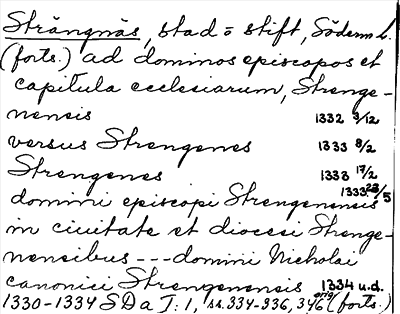 Strängnäs, stad o stift, Söderm l.
(forts.) ad dominos episcopos et
capitula ecclesiarum, Strenge-
nensis 1332 3/12
versus Strengenes 1333 8/2
Strengenes 1333 17/2
1333 23/5
domini episcopi Strengenensis
in ciuitate et diocesi Strenge-
nensibus --- domini Nicholai
canonici Strengenensis 1334 u.d.
1330-1334 SD a I: 1, ss. 334-336, 346 orig (forts.)